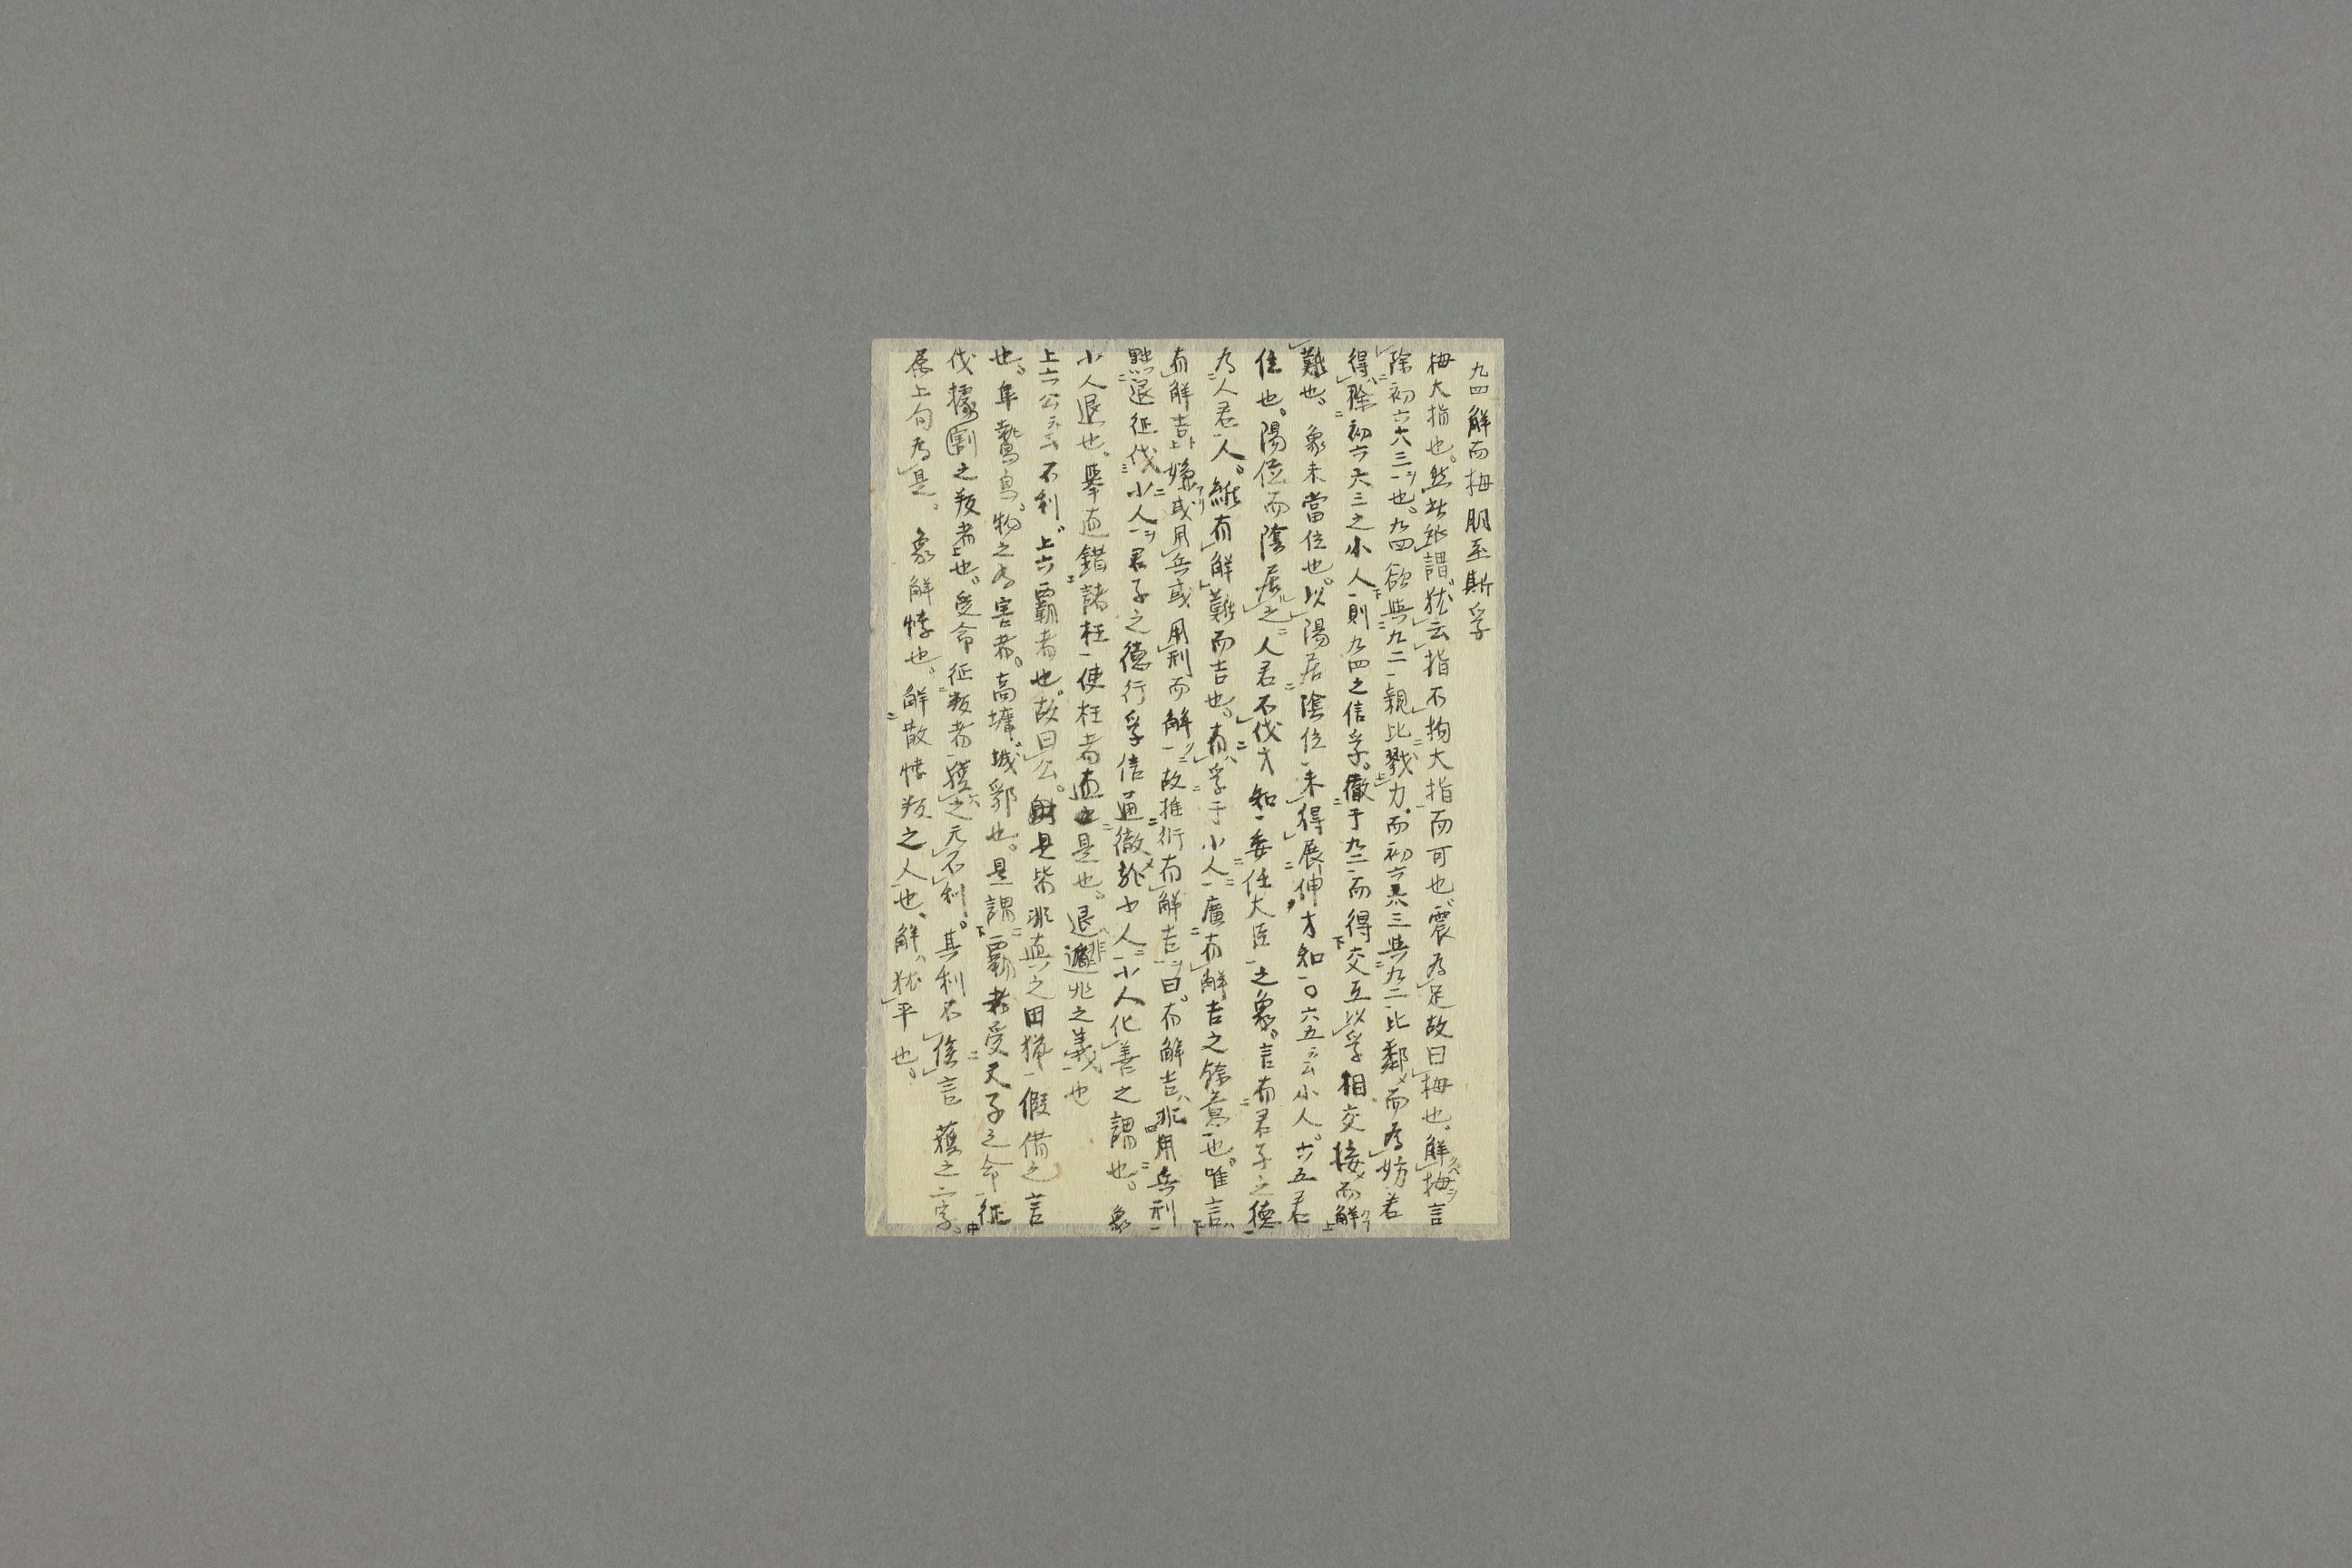 九四解而拇朋至斯孚
拇大指也。然此所謂猶云指不拘大指而可也震為足故曰拇也。解拇言
除初六六三也。九四欲與九二親比戮力。而初六六三與九二比鄰而為妨若
得除初六六三之小人則九四之信孚。徹于九二而得交互以孚相交接而解
難也。象未當位也。以陽居陰位未得展伸才知〇六五云小人。六五君
位也。陽位而陰居之人君不伐才知委任大臣之象。言有君子之德
為人君人。維有解難而吉也。有孚于小人廣有解吉之餘意也。唯言
有解吉嫌或用兵或用刑而解故推衍有解吉曰。有解吉非用兵刑
黜退征伐小人君子之德行孚信通徹於小人小人化善之謂也。象
小人退也。舉直錯諸枉使枉者直是也。退非遯逃之義也
上六公云云不利。上六霸者也。故曰公。射是皆非真之田獵假借之言
也。隼鷙鳥。物之為害者。高墉城郭也。是謂霸者受天子之命征
伐據割之叛者也。受命征叛者獲之无不利。其利不俟言獲之二字。
属上句為是。象解悖也。解散悖叛之人也、解猶平也。